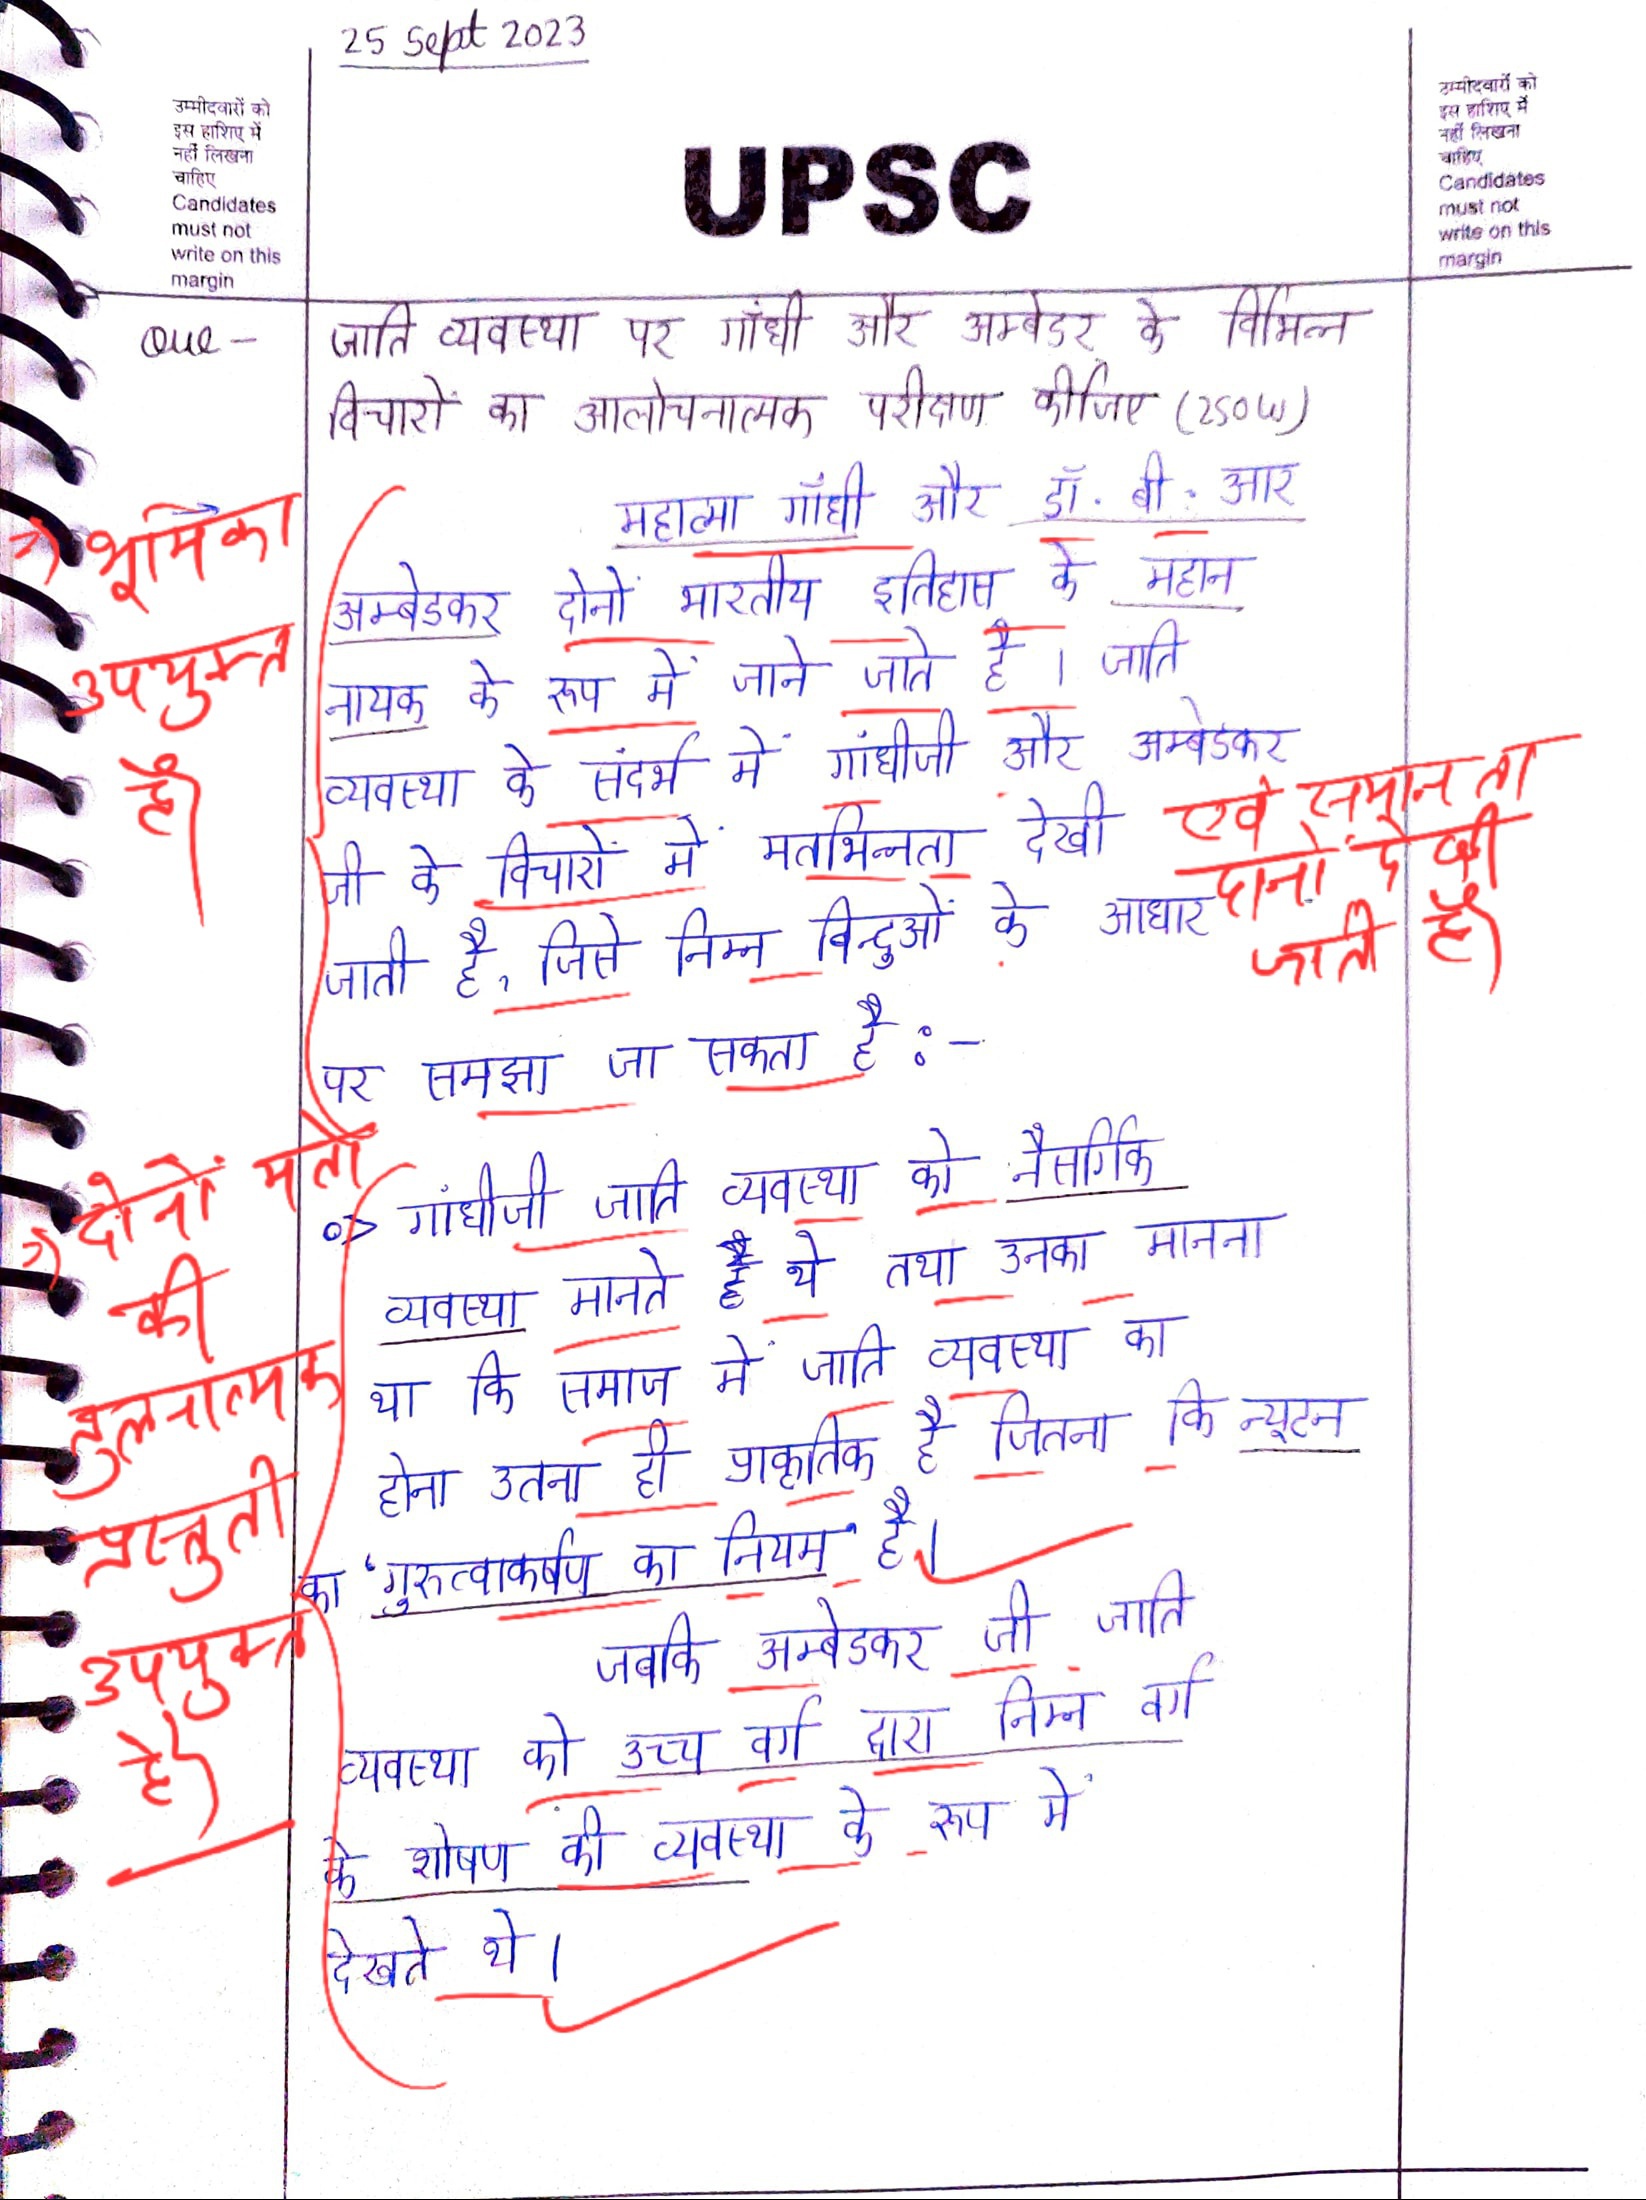 25 Sept 2023
उम्मीदवारों को
इस हाशिए में
नहीं लिखना
चाहिए
Candidates
must not
write on this
margin
UPSC
उम्मीदवारों को
इस हाशिए में
नहीं लिखना
चाहिए
Candidates
must not
write on this
margin
Que - जाति व्यवस्था पर गाँधी और अम्बेडर के विभिन्न
विचारों का आलोचनात्मक परीक्षण कीजिए (250W)
महात्मा गाँधी और डॉ. बी. आर
अम्बेडकर दोनों भारतीय इतिहास के महान
नायक के रूप में जाने जाते है । जाति
व्यवस्था के संदर्भ में गांधीजी और अम्बेडकर
जी के विचारों में मतभिन्नता देखी
जाती है, जिसे निम्न बिन्दुओं के आधार
पर समझा जा सकता है :-
भूमिका
उपयुक्त
है।
एवं समानता
दोनों देखी
जाती है।
गांधीजी जाति व्यवस्था को नैसर्गिक
व्यवस्था मानते है थे तथा उनका मानना
था कि समाज में जाति व्यवस्था का
होना उतना ही प्राकृतिक है जितना कि न्यूटन
का 'गुरुत्वाकर्षण का नियम' है।
जबकि अम्बेडकर जी जाति
व्यवस्था को उच्च वर्ग द्वारा निम्न वर्ग
के शोषण की व्यवस्था के रूप में
देखते थे ।
दोनों मतों
की
तुलनात्मक
प्रस्तुती
उपयुक्त
है।